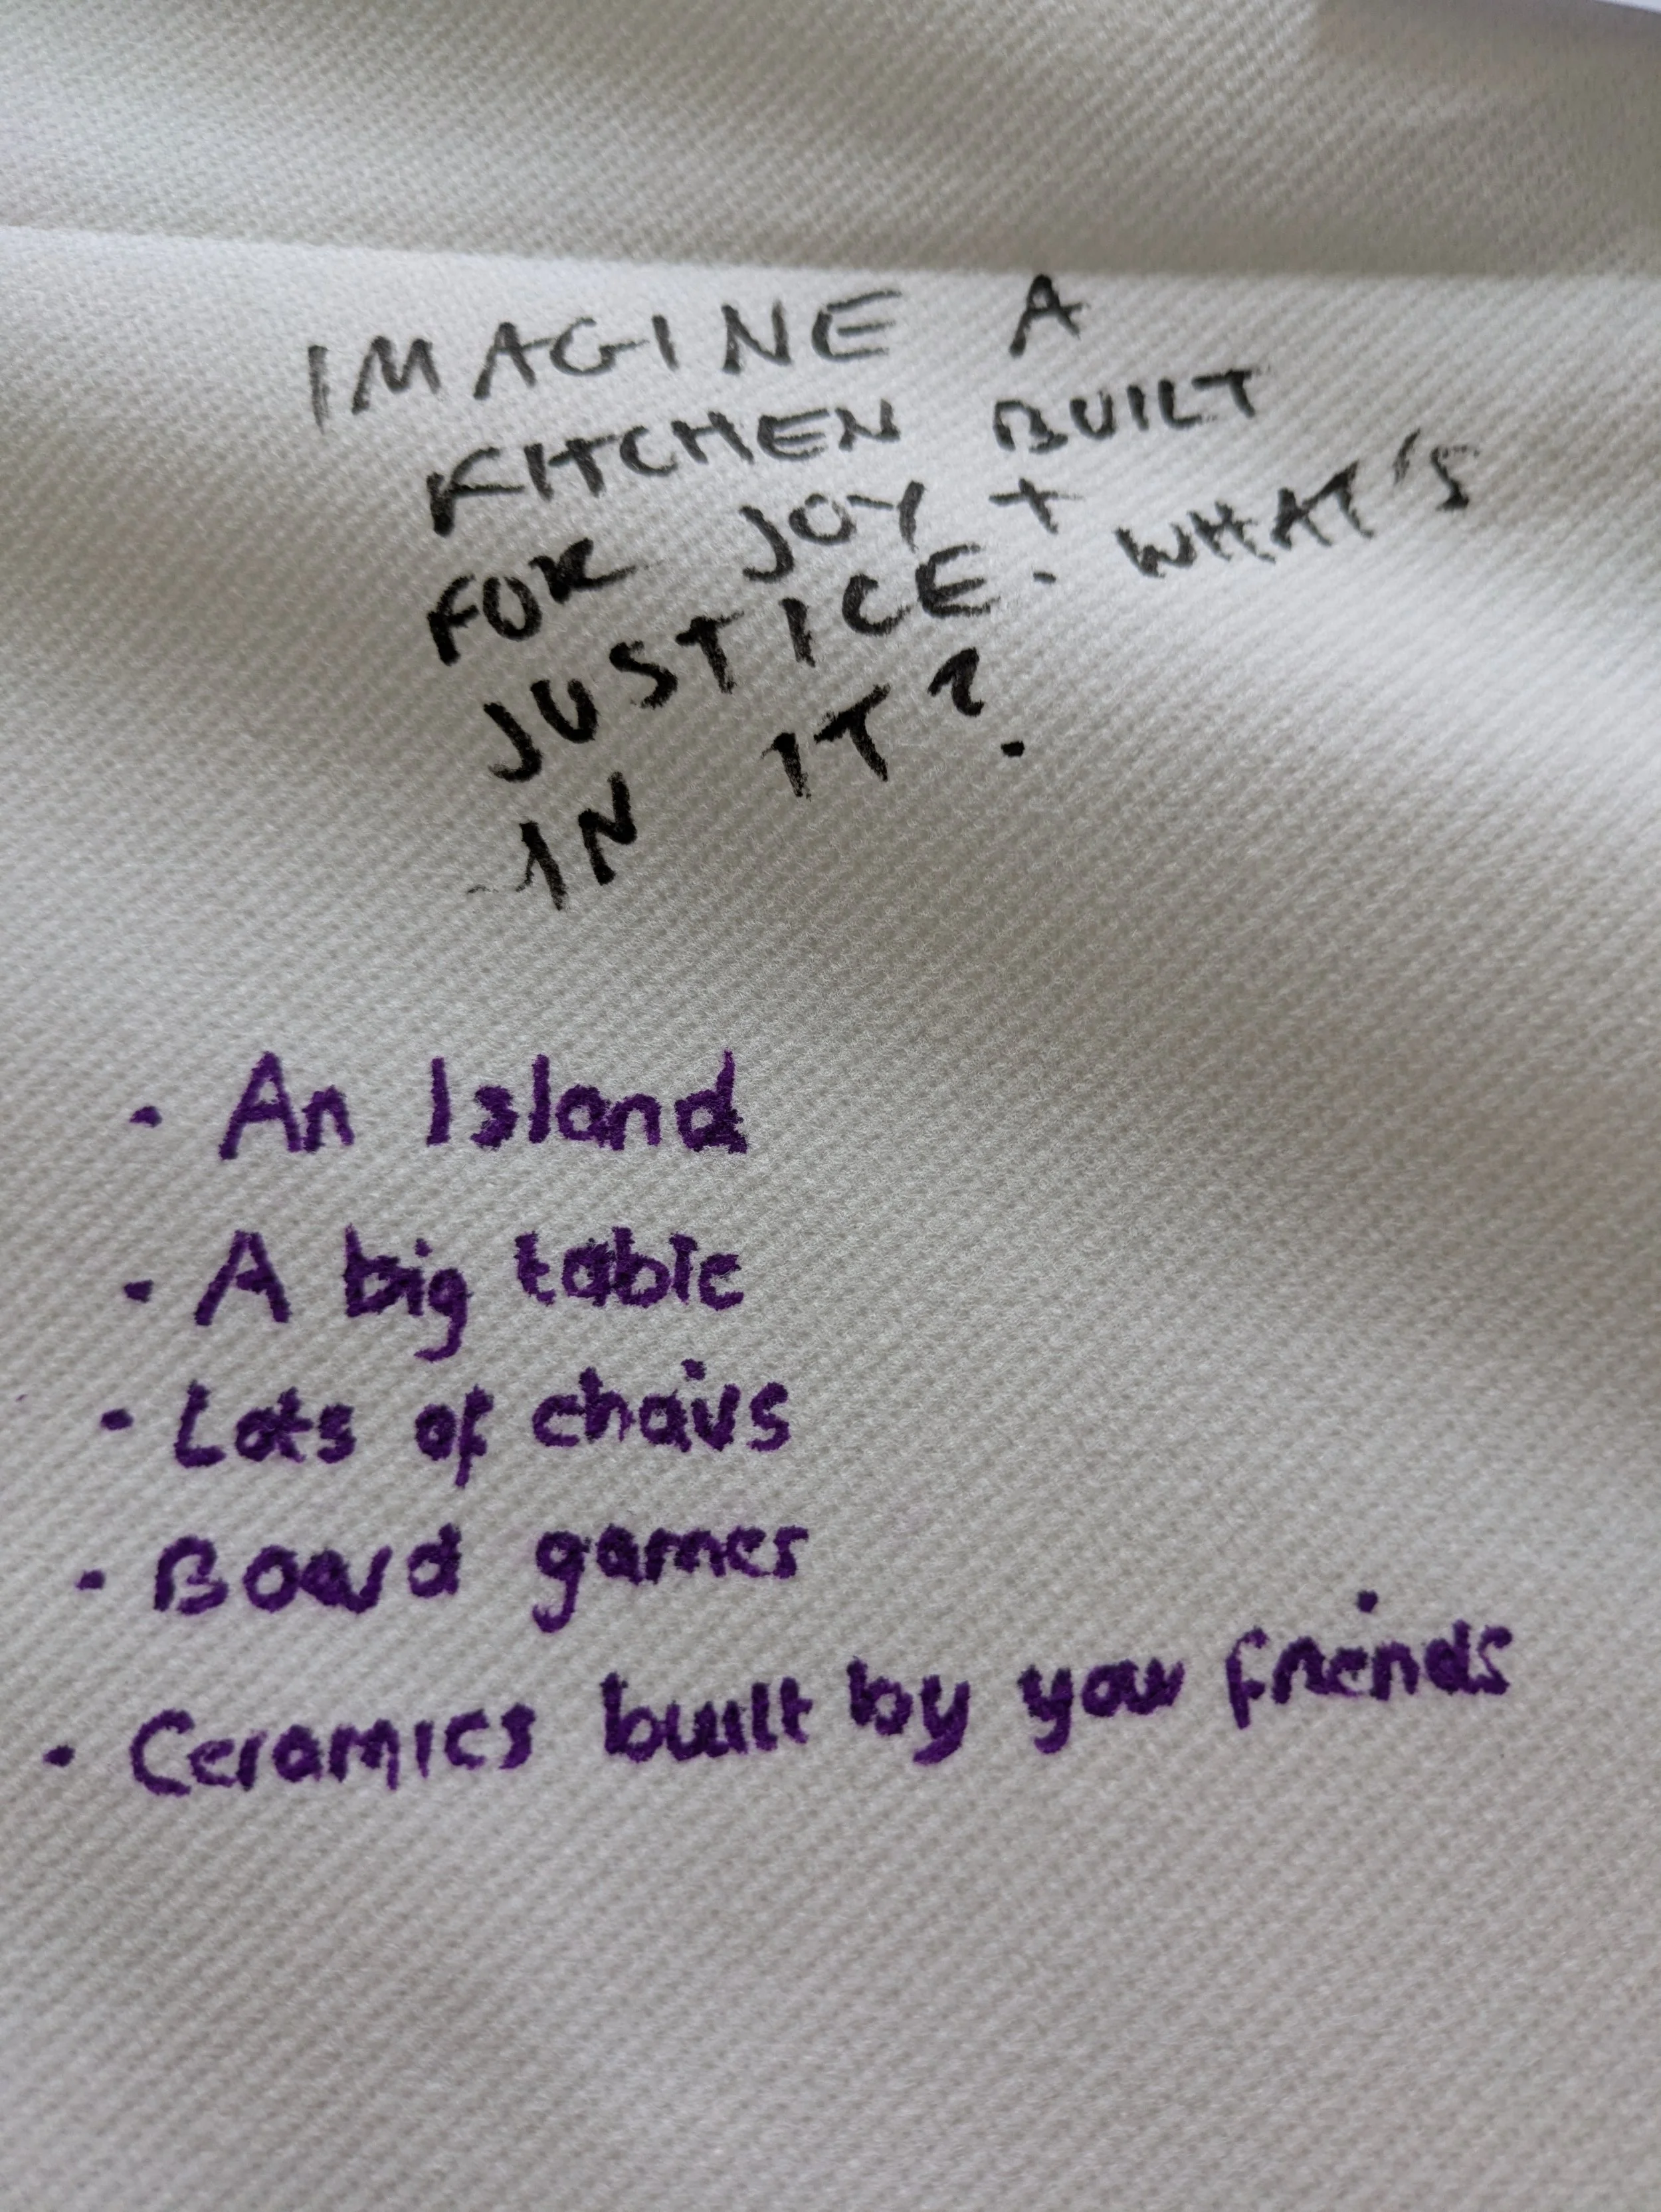 IMAGINE A
KITCHEN BUILT
FOR JOY +
JUSTICE. WHAT'S
IN IT?
- An Island
- A big table
- Lots of chairs
- Board games
- Ceramics built by your friends